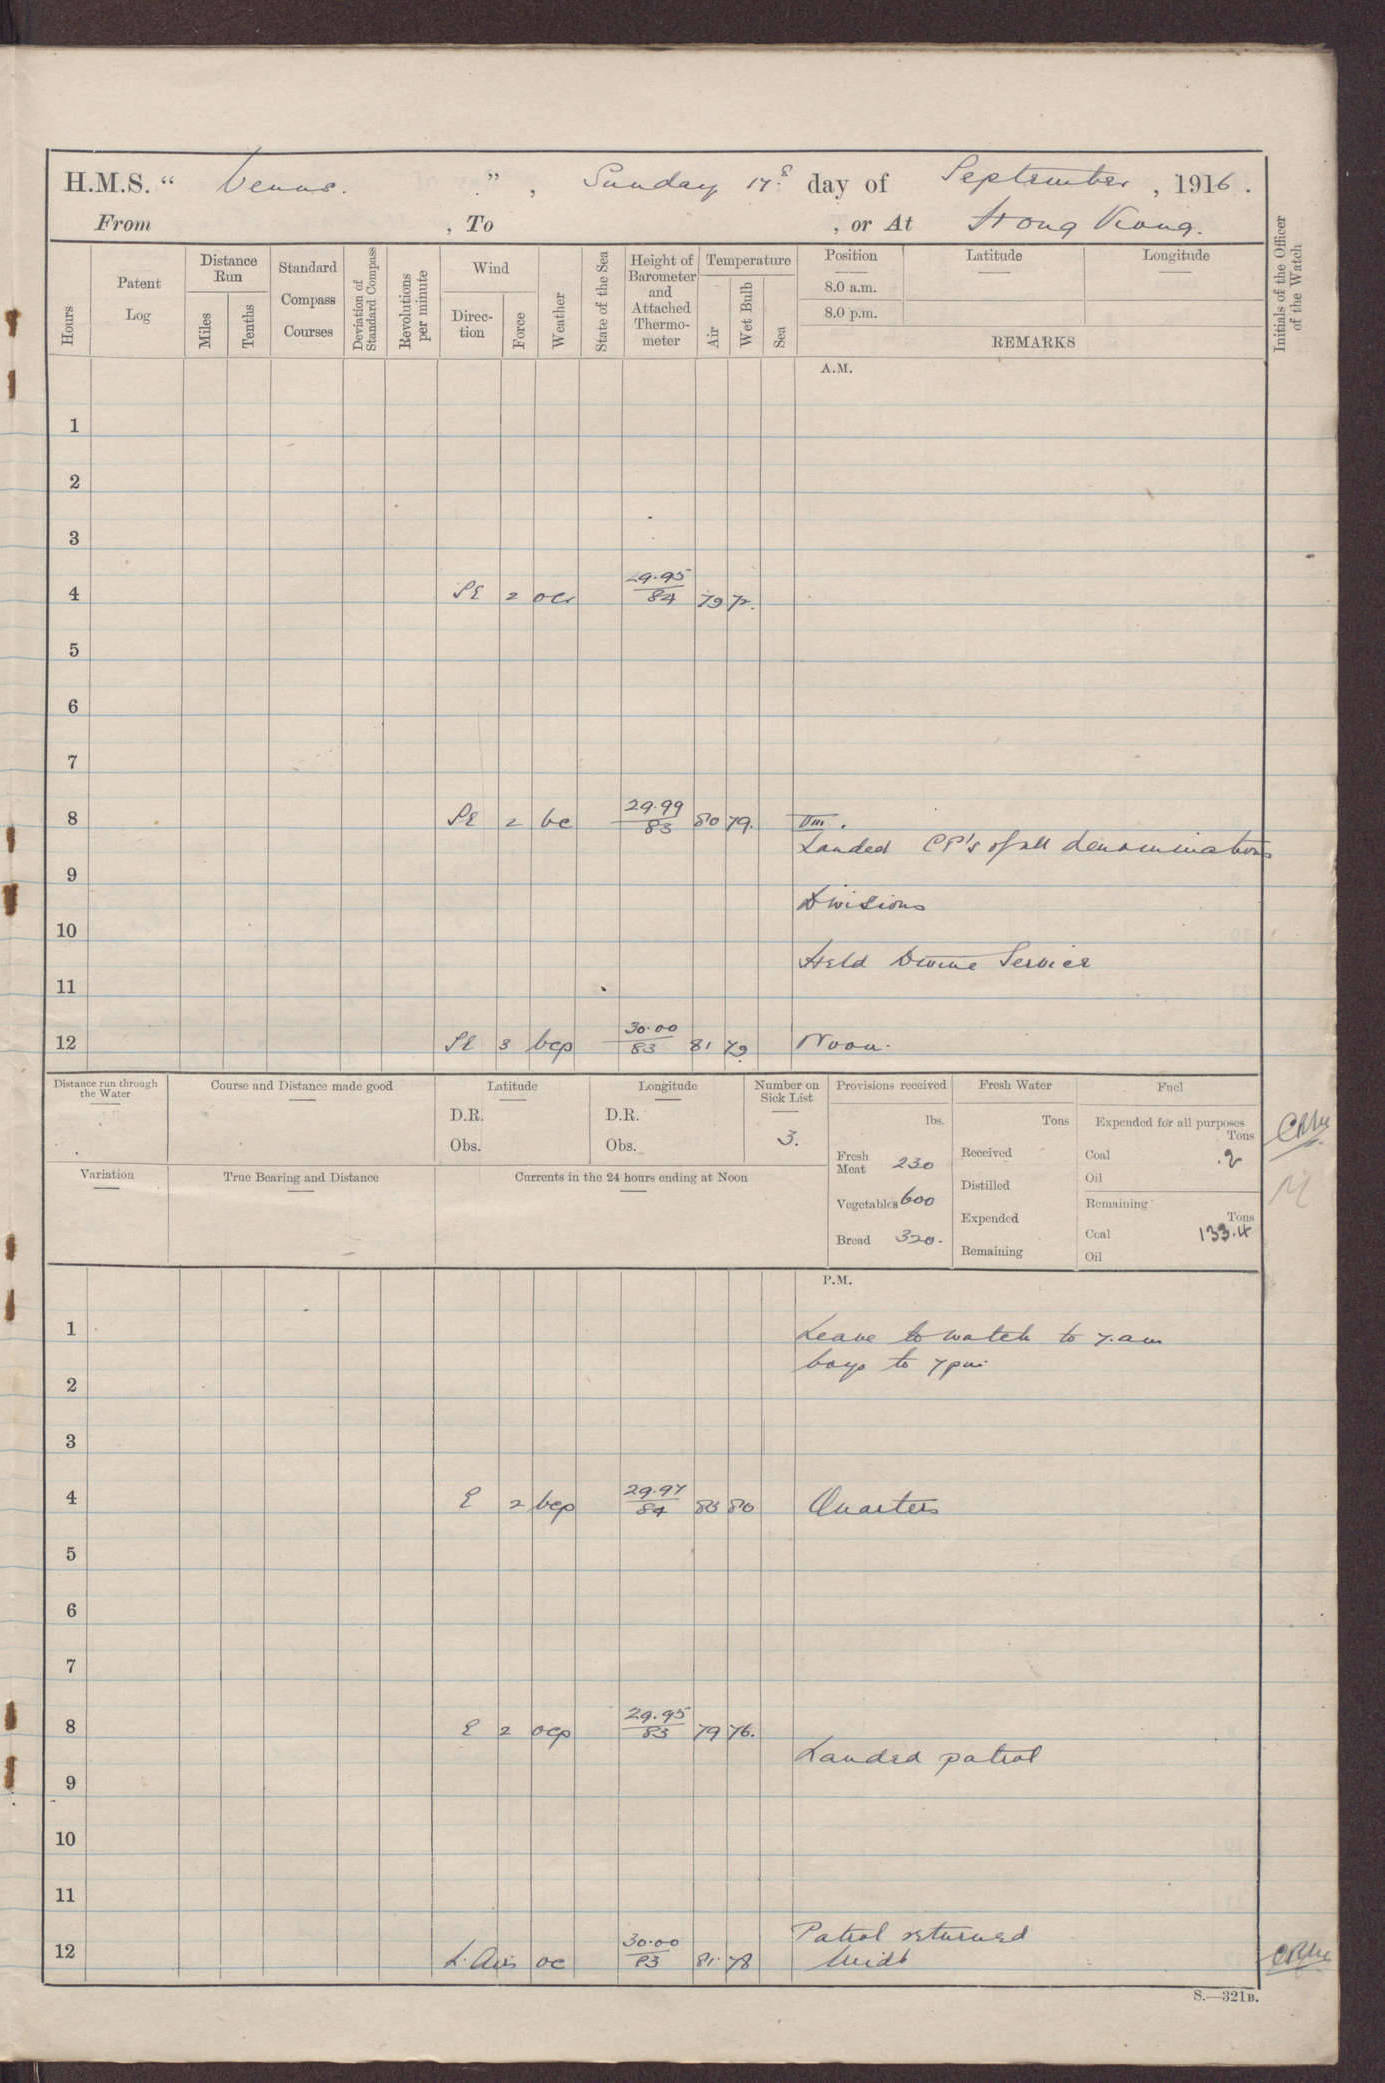 H.M.S. “ Venus. ” , Sunday 17th day of September , 1916 .
From , To , or At Hong Kong.
Hours
Patent Log
Distance Run
Miles
Tenths
Standard Compass Courses
Deviation of Standard Compass
Revolutions per minute
Wind
Direc-tion
Force
Weather
State of the Sea
Height of Barometer and Attached Thermo-meter
Temperature
Air
Wet Bulb
Sea
Position
8.0 a.m.
8.0 p.m.
Latitude
Longitude
REMARKS
Initials of the Officer of the Watch
A.M.
1
2
3
4 SE 2 29.95 84 79
5
6
7
8 SE 2 bc 29.99 83 80 79. VIII.
Landed CP's of all denominations
9
Divisions
10
Held Divine Service
11
12 SE 3 bcp 30.00 83 81 79 Noon.
Distance run through the Water
Course and Distance made good
Latitude
D.R.
Obs.
Longitude
D.R.
Obs.
Number on Sick List
3.
Provisions received
lbs.
Fresh Meat 230
Vegetables 600
Bread 320.
Fresh Water
Tons
Received
Distilled
Expended
Remaining
Fuel
Expended for all purposes
Tons
Coal .2
Oil
Remaining
Tons
Coal 133.4
Oil
Variation
True Bearing and Distance
Currents in the 24 hours ending at Noon
P.M.
1 Leave to watch to 7.am
boys to 7pm.
2
3
4 E 2 bcp 29.97 84 80 Quarters
5
6
7
8 E 2 ocp 29.95 83 79 76.
Landed patrol
9
10
11
Patrol returned
12 L. Airs oc 30.00 83 81 78 Midt
S.—321B.